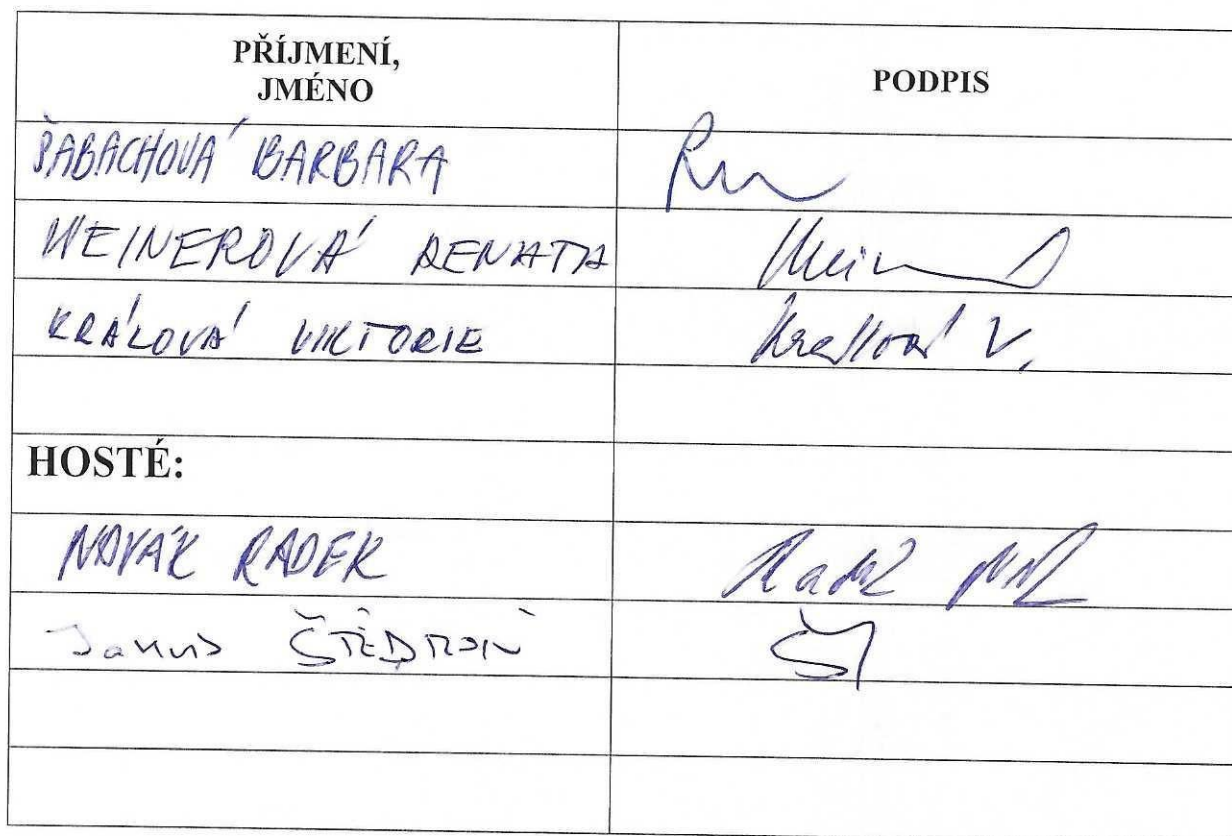 PŘÍJMENÍ,
JMÉNO
PODPIS
ŠABACHOVÁ BARBARA
WEINEROVÁ RENATA
KRÁLOVÁ VIKTORIE
Králová V.
HOSTÉ:
NOVÁK RADEK
Radek
Jakub ŠTĚDROŇ
Š